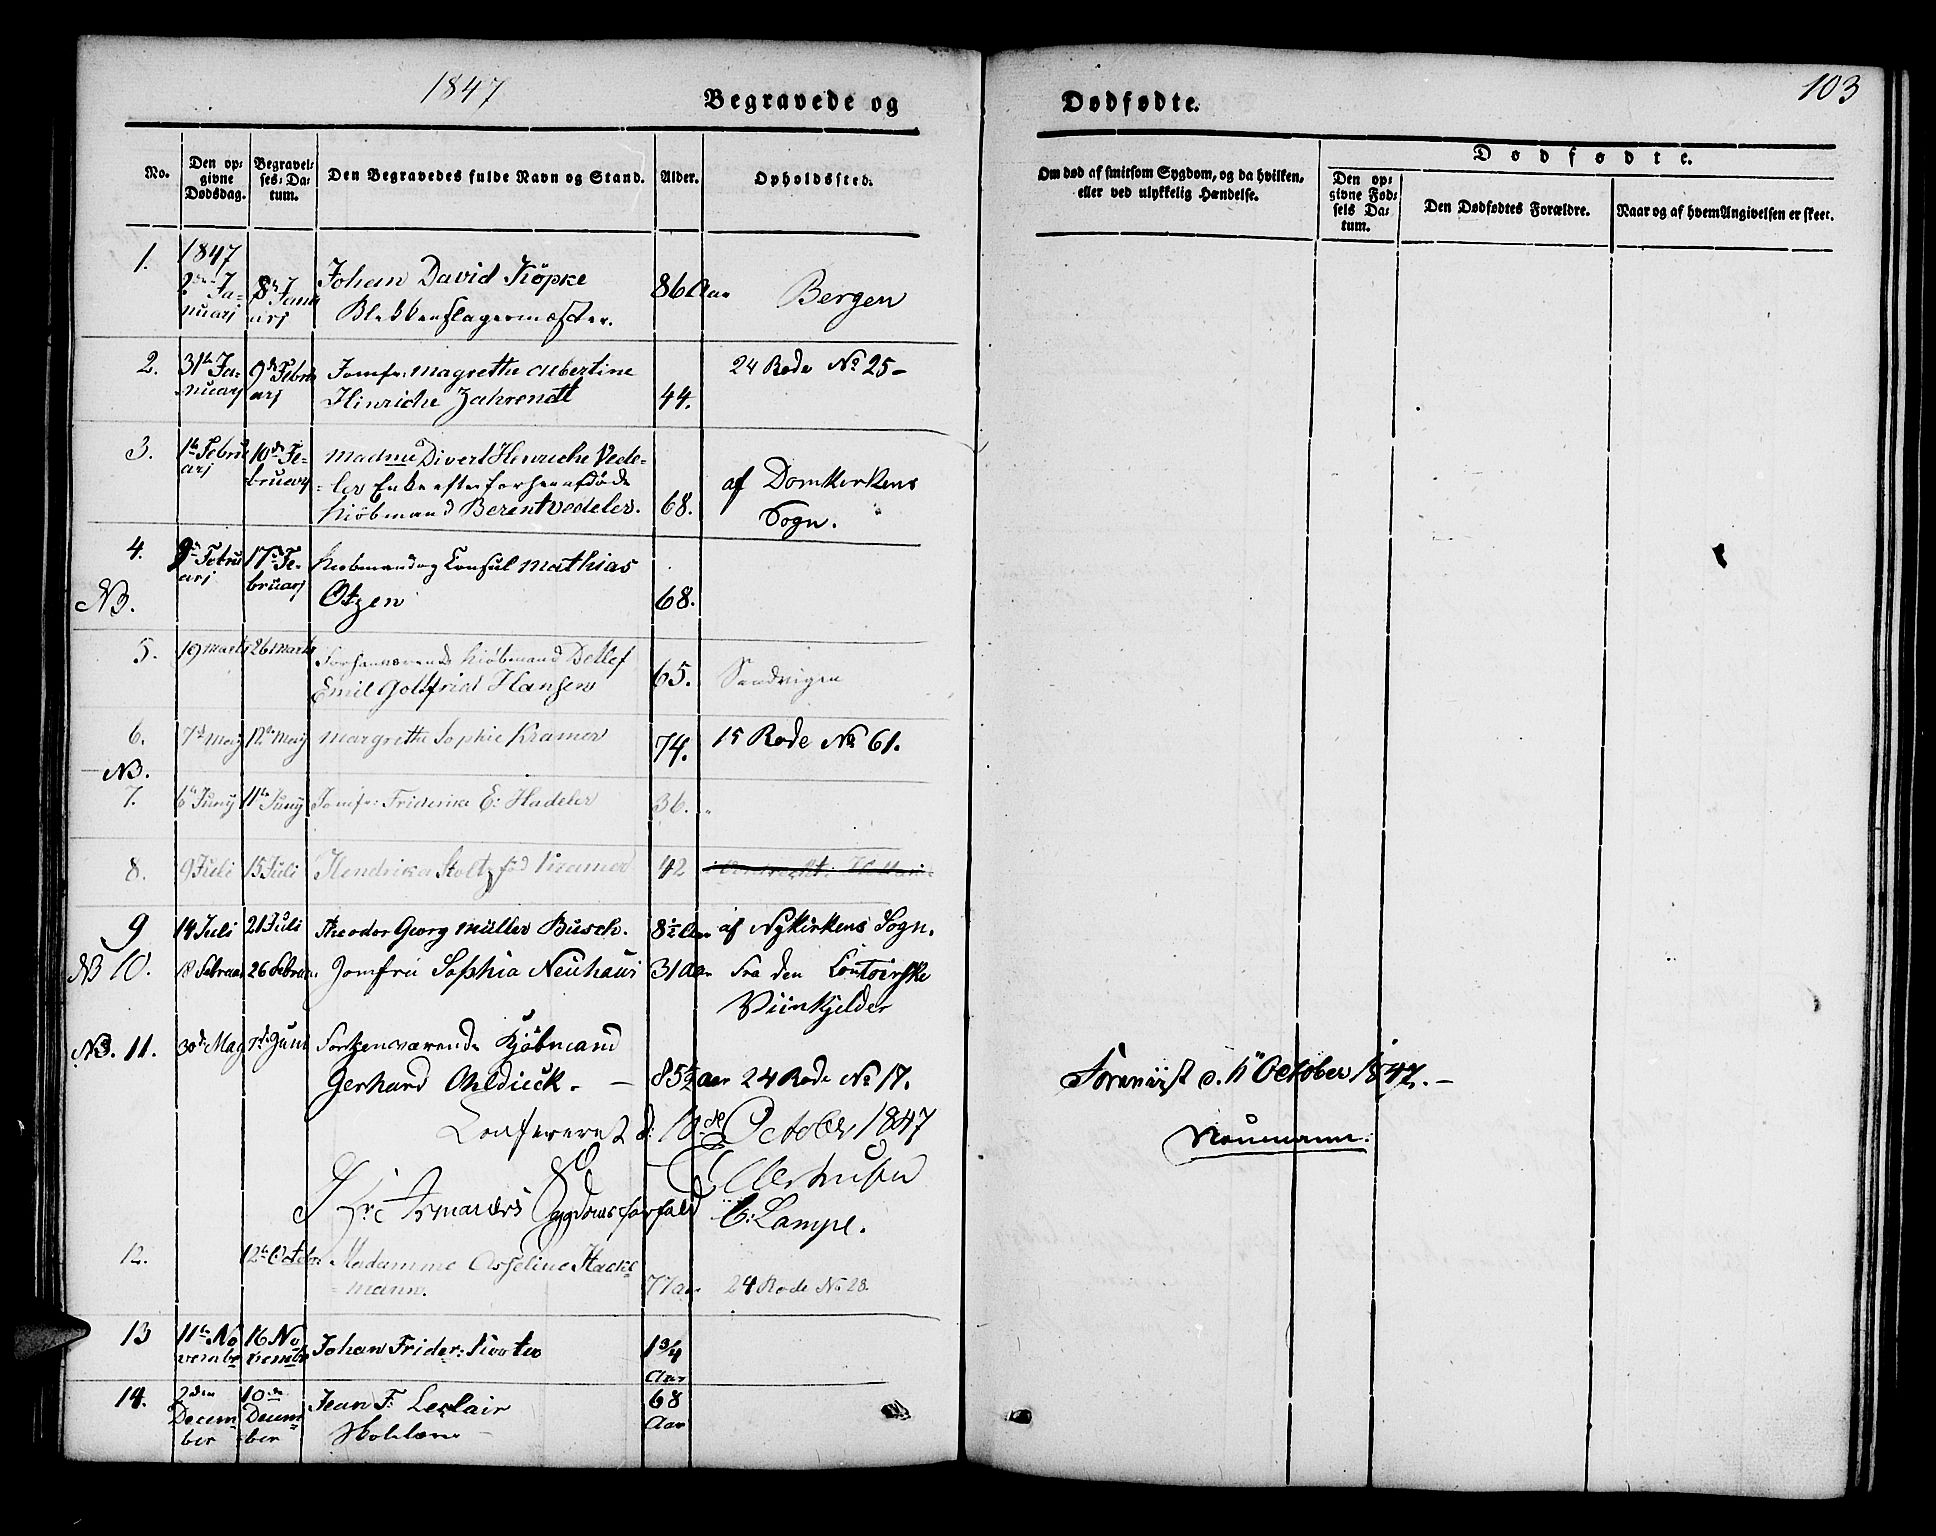 1847
103
Begravede og Dødfødte.
No.
Den opgivne Dødsdag.
Begravelses-Datum.
Den Begravedes fulde Navn og Stand.
Alder.
Opholdssted.
Om død af smitsom Sygdom, og da hvilken, eller ved ulykkelig Hændelse.
Dødfødte.
Den opgivne Fødsels Datum.
Den Dødfødtes Forældre.
Naar og af hvem Angivelsen er skeet.
1. 1847
2den Januarj 8de Januarj Johan David Köpke 86 Aar Bergen
Blekkenslagermæster.
2. 31te Januarj 9de Februarj Jomfr: Magrethe Albertine 24 Rode No 25-
Hinriche Zahrendt 44.
3. 1te Februarj 10de Februarj Madme Divert Henriche Vedeler Enke efter forhen afdøde 68. af Domkirkens
Kiöbmand Berent Vedeler. Sogn.
4. Februarj 17de Februarj Kiöbmand og Consul Mathias
NB. Otzen 68.
5. 19 Marts 26 Marts Forhenværende Kiöbmand Detlef
Emil Gottfried Hansen 65. Sandvigen
6. 7de Maij 12te Maij Margrethe Sophie Kramer 74. 15 Rode No 61.
NB.
7. 6te Junij 11te Junij Jomfr: Friderike E: Hadeler 36.
8. 9 Juli 15 Juli Hendrika Stoltz föd Kramer 42
9 14 Juli 21 Juli Theodor Georg Müller Busch. 8½ Aar af Nykirkens Sogn.
NB 10. 18 Februar 26 Februar. Jomfru Sophia Neuhaus 31 Aar fra den
Viinkjelder
NB. 11. 30te Maj Juni Forhenværende Kjöbmand
Gerhard Ohldieck. - 85½ Aar 24 Rode No 17.
Confereret d: 18de October 1847
Sygdomsforfald C: Lampe.
Foreviist d. 11 October 1847. -
Neumann.
12. 12te October Madamme Asseline Hackemann. 77 aar 24 Rode No 28.
13 11te November 16 November Johan Frider: 1¾ Aar
14. 2den December 10de December Jean F: Leclair 68 Aar